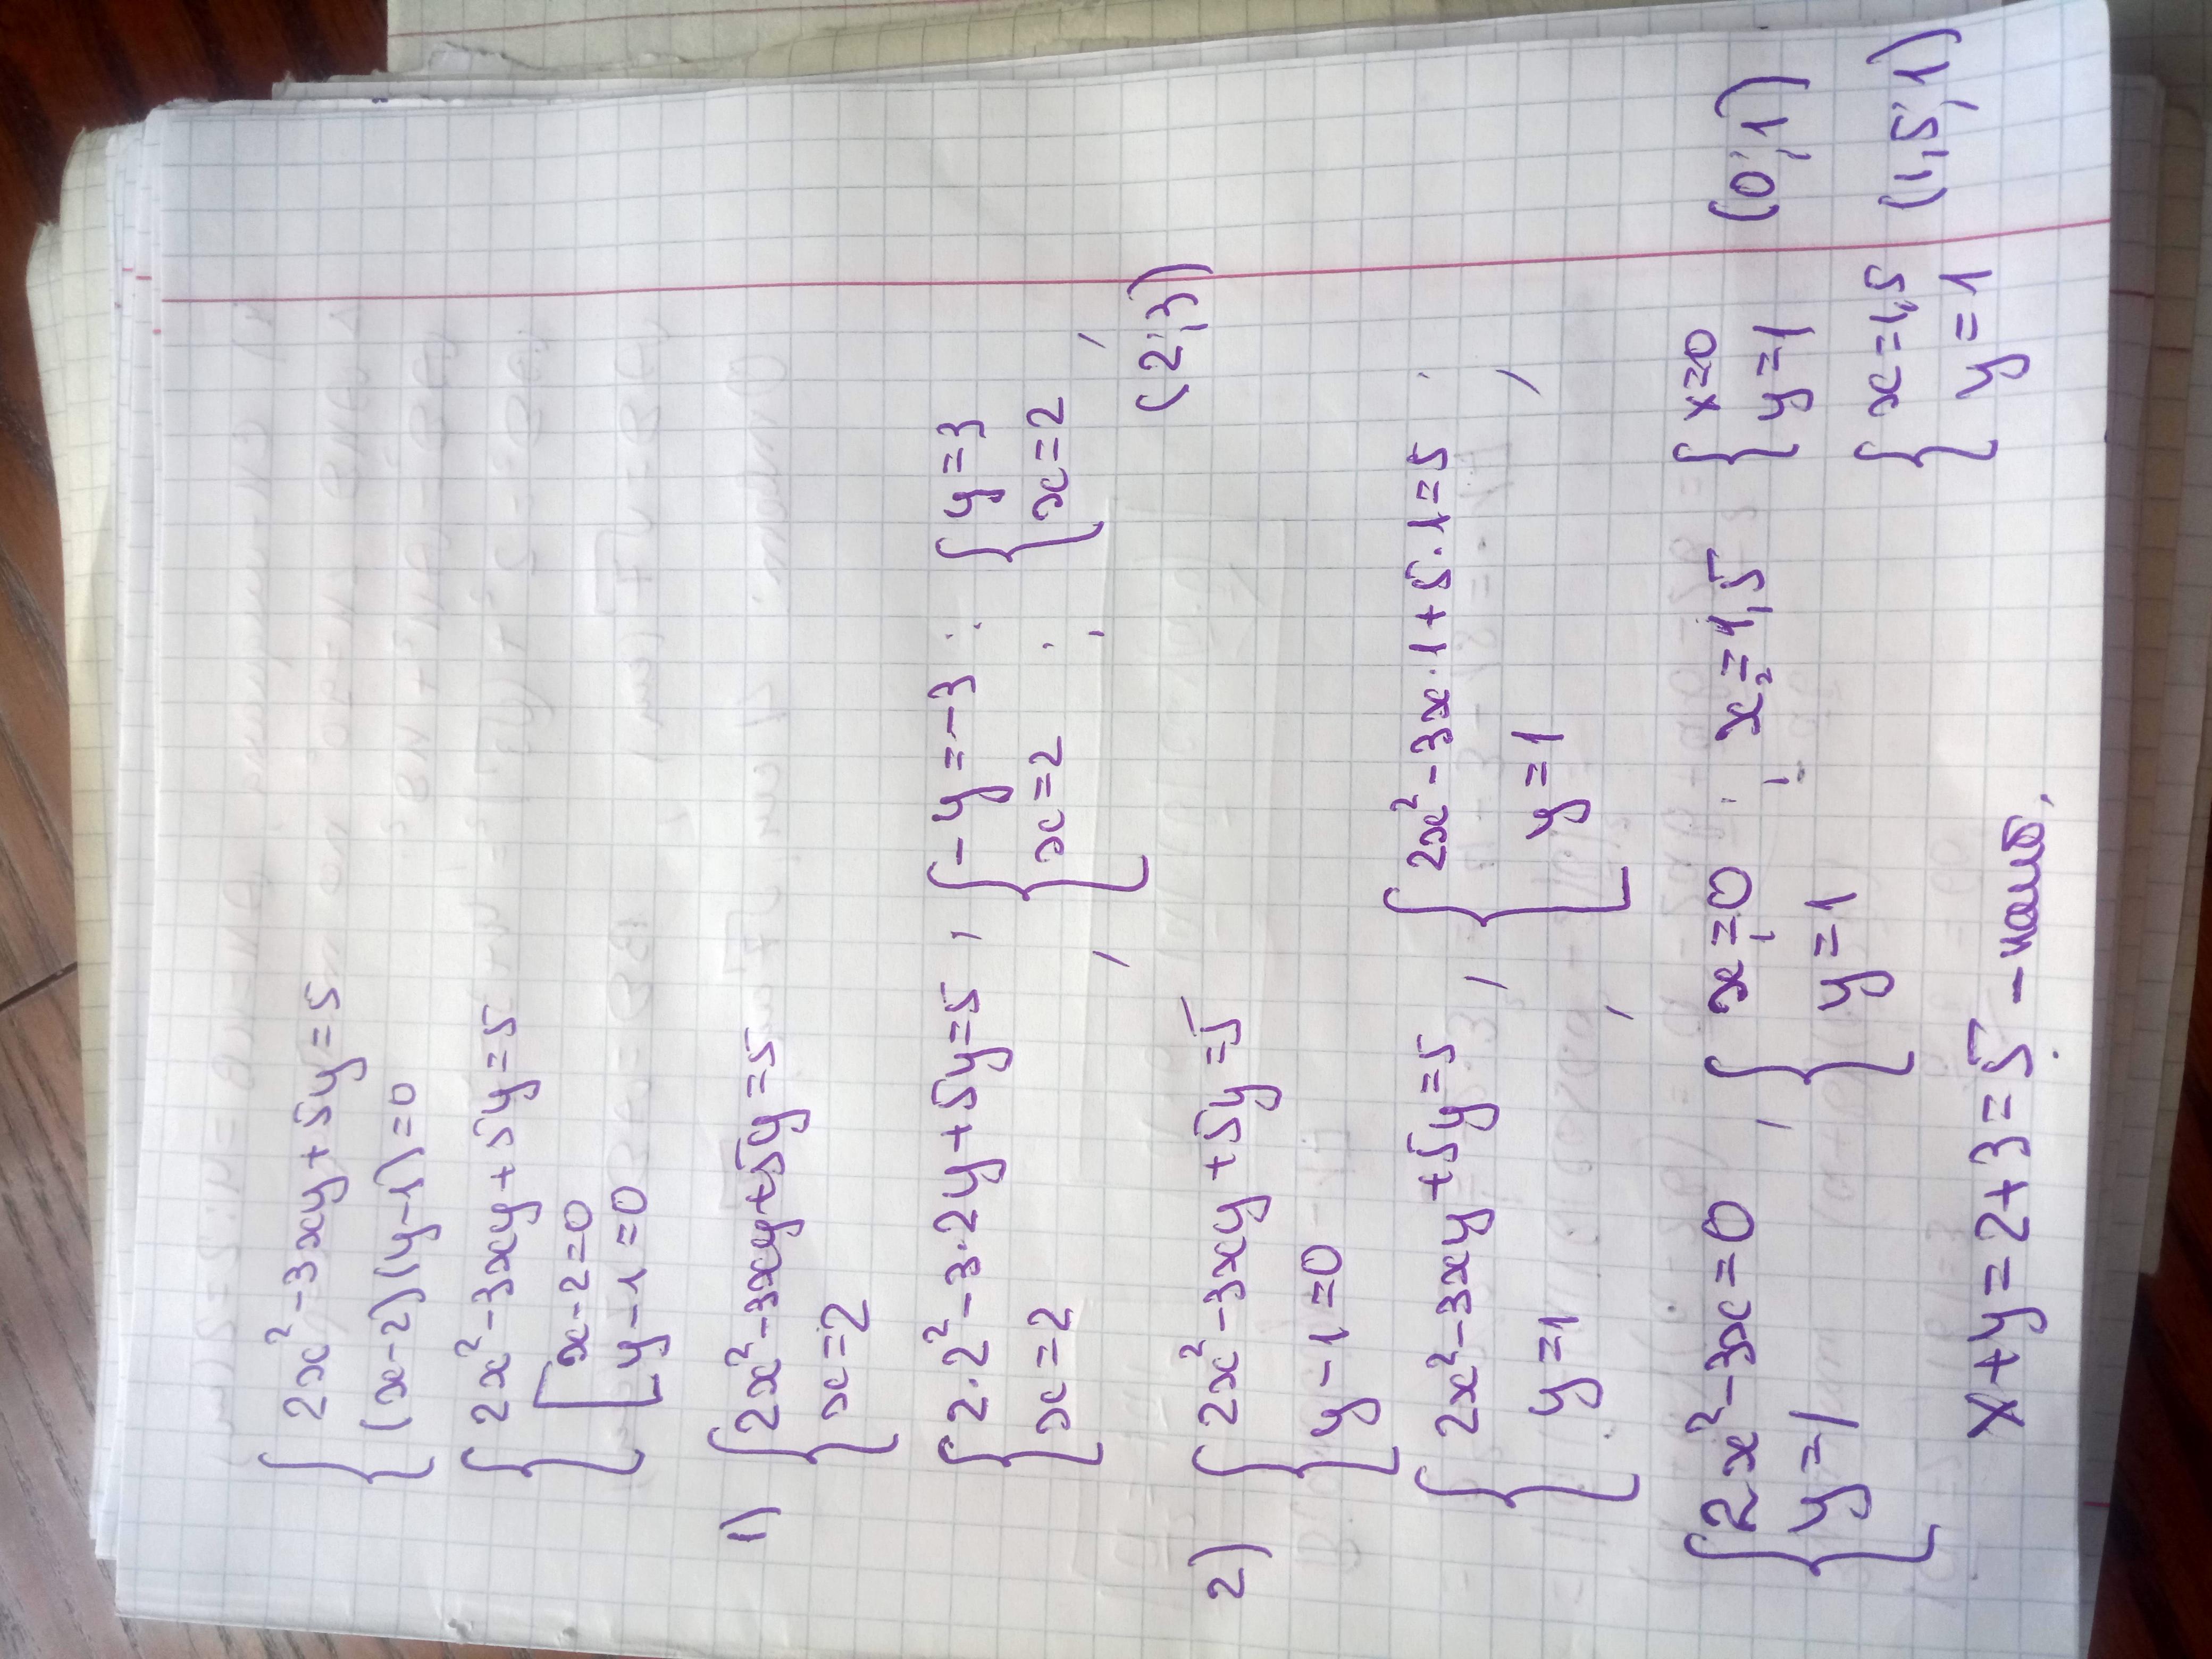 { 2x² - 3xy + 5y = 5
(x-2)(y-1) = 0
{ 2x² - 3xy + 5y = 5
[ x - 2 = 0
y - 1 = 0
1) { 2x² - 3xy + 5y = 5
x = 2
{ 2·2² - 3·2y + 5y = 5, { -y = -3; { y = 3
x = 2, x = 2; x = 2,
(2; 3)
2) { 2x² - 3xy + 5y = 5
y - 1 = 0
{ 2x² - 3xy + 5y = 5, { 2x² - 3x·1 + 5·1 = 5,
y = 1, y = 1,
{ 2x² - 3x = 0, { x₁ = 0; x₂ = 1,5 { x = 0 (0; 1)
y = 1 y = 1 y = 1
{ x = 1,5 (1,5; 1)
y = 1
x + y = 2 + 3 = 5 - наиб.